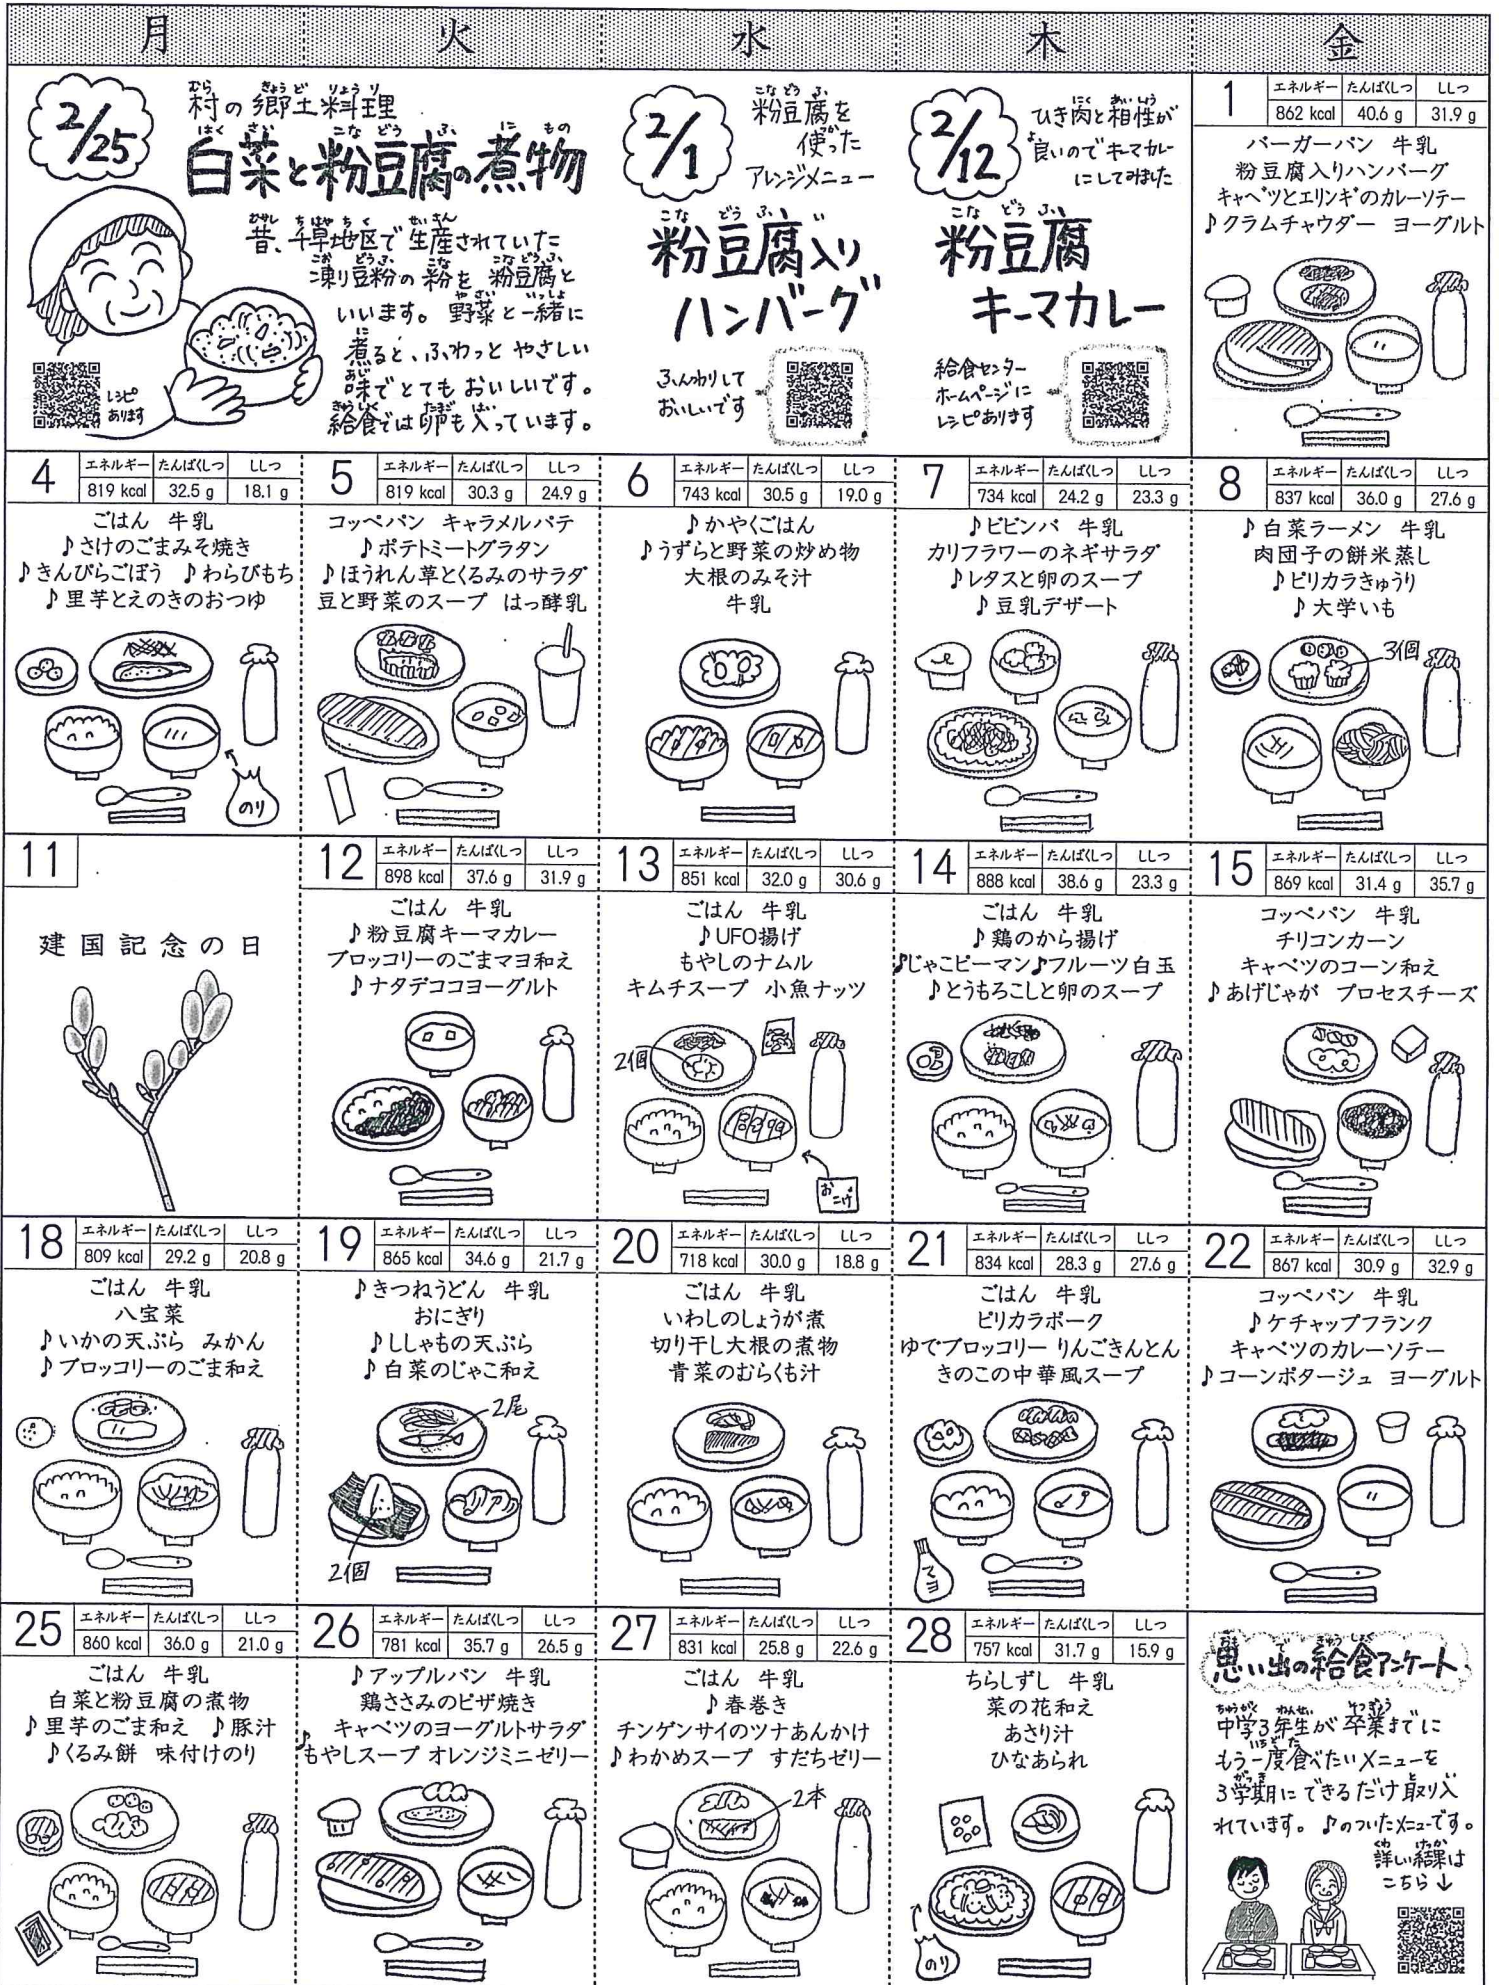 月 火 水 木 金
2/25
村の郷土料理
白菜と粉豆腐の煮物
昔、千草地区で生産されていた
凍り豆粉の粉を粉豆腐と
いいます。野菜と一緒に
煮ると、ふわっとやさしい
味でとてもおいしいです。
給食では卵も入っています。
レシピ
あります
2/1
粉豆腐を
使った
アレンジメニュー
粉豆腐入り
ハンバーグ
ふんわりして
おいしいです
2/12
ひき肉と相性が
良いのでキーマカレー
にしてみました
粉豆腐
キーマカレー
給食センター
ホームページに
レシピあります
1 エネルギー たんぱくしつ ししつ
862 kcal 40.6 g 31.9 g
バーガーパン 牛乳
粉豆腐入りハンバーグ
キャベツとエリンギのカレーソテー
♪クラムチャウダー ヨーグルト
4 エネルギー たんぱくしつ ししつ
819 kcal 32.5 g 18.1 g
ごはん 牛乳
♪さけのごまみそ焼き
♪きんぴらごぼう ♪わらびもち
♪里芋とえのきのおつゆ
のり
5 エネルギー たんぱくしつ ししつ
819 kcal 30.3 g 24.9 g
コッペパン キャラメルパテ
♪ポテトミートグラタン
♪ほうれん草とくるみのサラダ
豆と野菜のスープ はっ酵乳
6 エネルギー たんぱくしつ ししつ
743 kcal 30.5 g 19.0 g
♪かやくごはん
♪うずらと野菜の炒め物
大根のみそ汁
牛乳
7 エネルギー たんぱくしつ ししつ
734 kcal 24.2 g 23.3 g
♪ビビンバ 牛乳
カリフラワーのネギサラダ
♪レタスと卵のスープ
♪豆乳デザート
8 エネルギー たんぱくしつ ししつ
837 kcal 36.0 g 27.6 g
♪白菜ラーメン 牛乳
肉団子の餅米蒸し
♪ピリカラきゅうり
♪大学いも
3個
11
建国記念の日
12 エネルギー たんぱくしつ ししつ
898 kcal 37.6 g 31.9 g
ごはん 牛乳
♪粉豆腐キーマカレー
ブロッコリーのごまマヨ和え
♪ナタデココヨーグルト
13 エネルギー たんぱくしつ ししつ
851 kcal 32.0 g 30.6 g
ごはん 牛乳
♪UFO揚げ
もやしのナムル
キムチスープ 小魚ナッツ
2個
おこげ
14 エネルギー たんぱくしつ ししつ
888 kcal 38.6 g 23.3 g
ごはん 牛乳
♪鶏のから揚げ
♪じゃこピーマン♪フルーツ白玉
♪とうもろこしと卵のスープ
15 エネルギー たんぱくしつ ししつ
869 kcal 31.4 g 35.7 g
コッペパン 牛乳
チリコンカーン
キャベツのコーン和え
♪あげじゃが プロセスチーズ
18 エネルギー たんぱくしつ ししつ
809 kcal 29.2 g 20.8 g
ごはん 牛乳
八宝菜
♪いかの天ぷら みかん
♪ブロッコリーのごま和え
19 エネルギー たんぱくしつ ししつ
865 kcal 34.6 g 21.7 g
♪きつねうどん 牛乳
おにぎり
♪ししゃもの天ぷら
♪白菜のじゃこ和え
2尾
2個
20 エネルギー たんぱくしつ ししつ
718 kcal 30.0 g 18.8 g
ごはん 牛乳
いわしのしょうが煮
切り干し大根の煮物
青菜のむらくも汁
21 エネルギー たんぱくしつ ししつ
834 kcal 28.3 g 27.6 g
ごはん 牛乳
ピリカラポーク
ゆでブロッコリー りんごきんとん
きのこの中華風スープ
マヨ
22 エネルギー たんぱくしつ ししつ
867 kcal 30.9 g 32.9 g
コッペパン 牛乳
♪ケチャップフランク
キャベツのカレーソテー
♪コーンポタージュ ヨーグルト
25 エネルギー たんぱくしつ ししつ
860 kcal 36.0 g 21.0 g
ごはん 牛乳
白菜と粉豆腐の煮物
♪里芋のごま和え ♪豚汁
♪くるみ餅 味付けのり
26 エネルギー たんぱくしつ ししつ
781 kcal 35.7 g 26.5 g
♪アップルパン 牛乳
鶏ささみのピザ焼き
キャベツのヨーグルトサラダ
♪もやしスープ オレンジミニゼリー
27 エネルギー たんぱくしつ ししつ
831 kcal 25.8 g 22.6 g
ごはん 牛乳
♪春巻き
チンゲンサイのツナあんかけ
♪わかめスープ すだちゼリー
2本
28 エネルギー たんぱくしつ ししつ
757 kcal 31.7 g 15.9 g
ちらしずし 牛乳
菜の花和え
あさり汁
ひなあられ
のり
思い出の給食アンケート
中学3年生が卒業までに
もう一度食べたいメニューを
3学期にできるだけ取り入
れています。♪のついたメニューです。
詳しい結果は
こちら↓